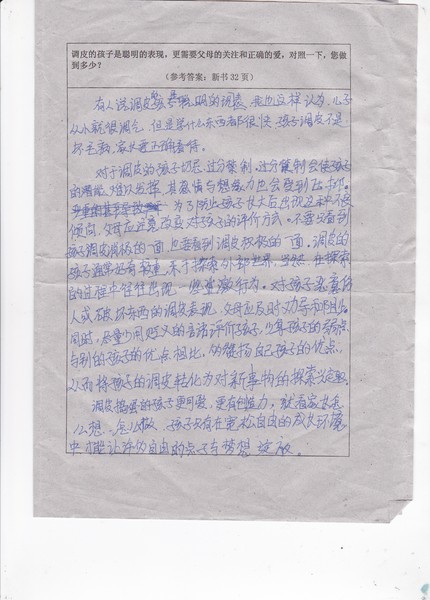 调皮的孩子是聪明的表现，更需要父母的关注和正确的爱，对照一下，您做
到多少？
（参考答案：新书 32 页）
有人说调皮的孩子是聪明的调表 我也这样认为，儿子
从小就很调气，但是学什么东西都很快，孩子调皮不是
坏毛病，家长要正确看待。
对于调皮的孩子切忌过分禁制，过分禁制会使孩子
的智能难以发挥，其热情与想象力也会受到压抑。
为了防止孩子长大后出现这种不良
倾向，父母应注意改变对孩子的评价方式。不要只看到
孩子调皮消极的一面，也要看到调皮积极的一面，调皮的
孩子通常还有敢于探索外部世界，当然，在探索
的过程中往往出现一些过激行为。对孩子恶意伤
人或破坏东西的调皮表现，父母应及时劝导和阻止。
同时，尽量少用贬义的言语评价孩子，少拿孩子的弱点
与别的孩子的优点相比，多发扬自己孩子的优点，
从而将孩子的调皮转化为对新事物的探索兴趣。
调皮捣蛋的孩子更可爱，更有创造力，就看家长怎
么想，怎么做，孩子只有在宽松自由的成长环境
中才能让许多自由的点子与梦想绽放。